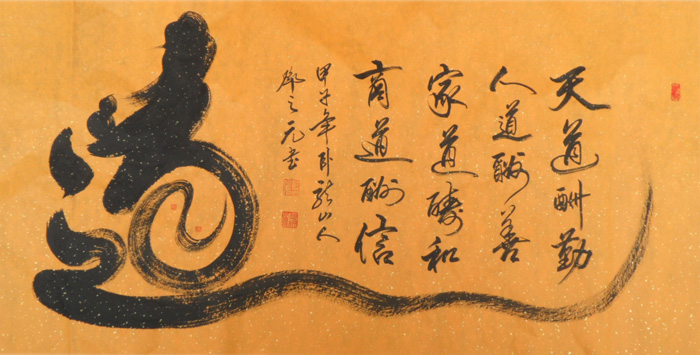 天道酬勤
人道酬善
家道酬和
商道酬信
甲子年卧龙山人
之元书
道